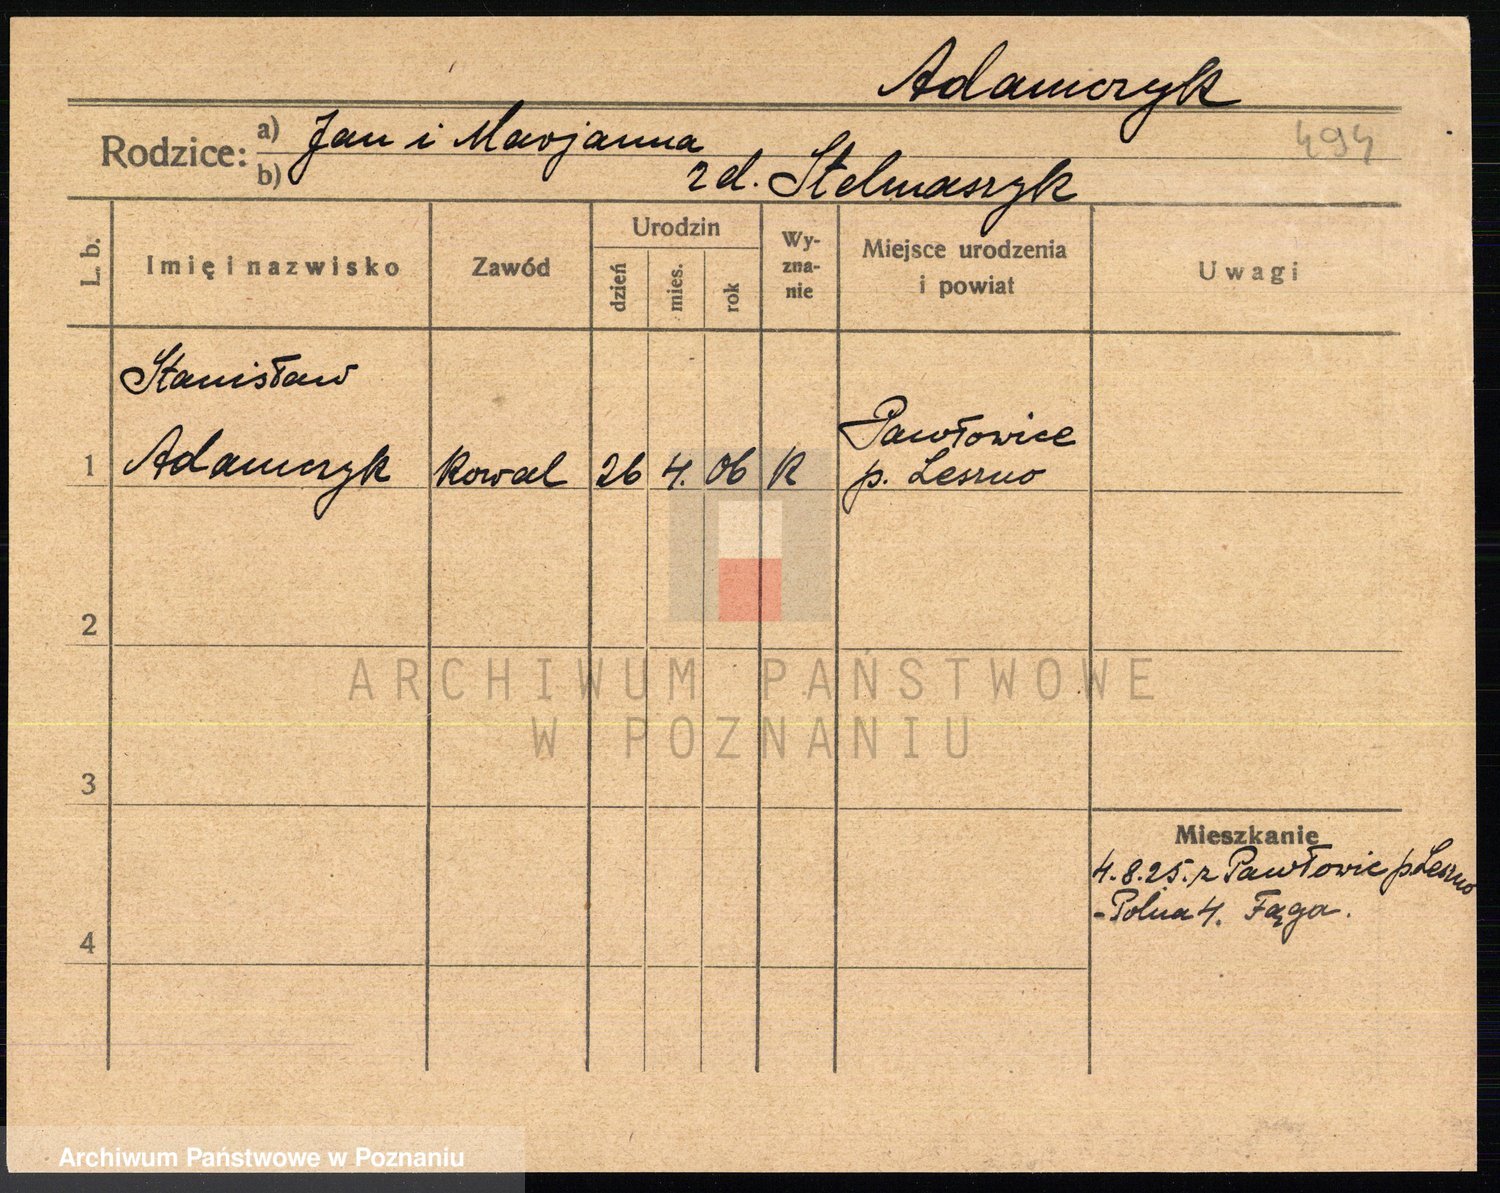 Adamczyk
494
Rodzice:
a) Jan i Marjanna
b) zd. Stelmaszyk
L. b.
Imię i nazwisko
Zawód
Urodzin
dzień
mies.
rok
Wy-
zna-
nie
Miejsce urodzenia
i powiat
Uwagi
Stanisław
Pawłowice
1 Adamczyk kowal 26 4. 06 K p. Leszno
2
ARCHIWUM PAŃSTWOWE
W POZNANIU
3
Mieszkanie
4.8.25. z Pawłowic p. Leszno
- Polna 4. Fąga.
4
Archiwum Państwowe w Poznaniu